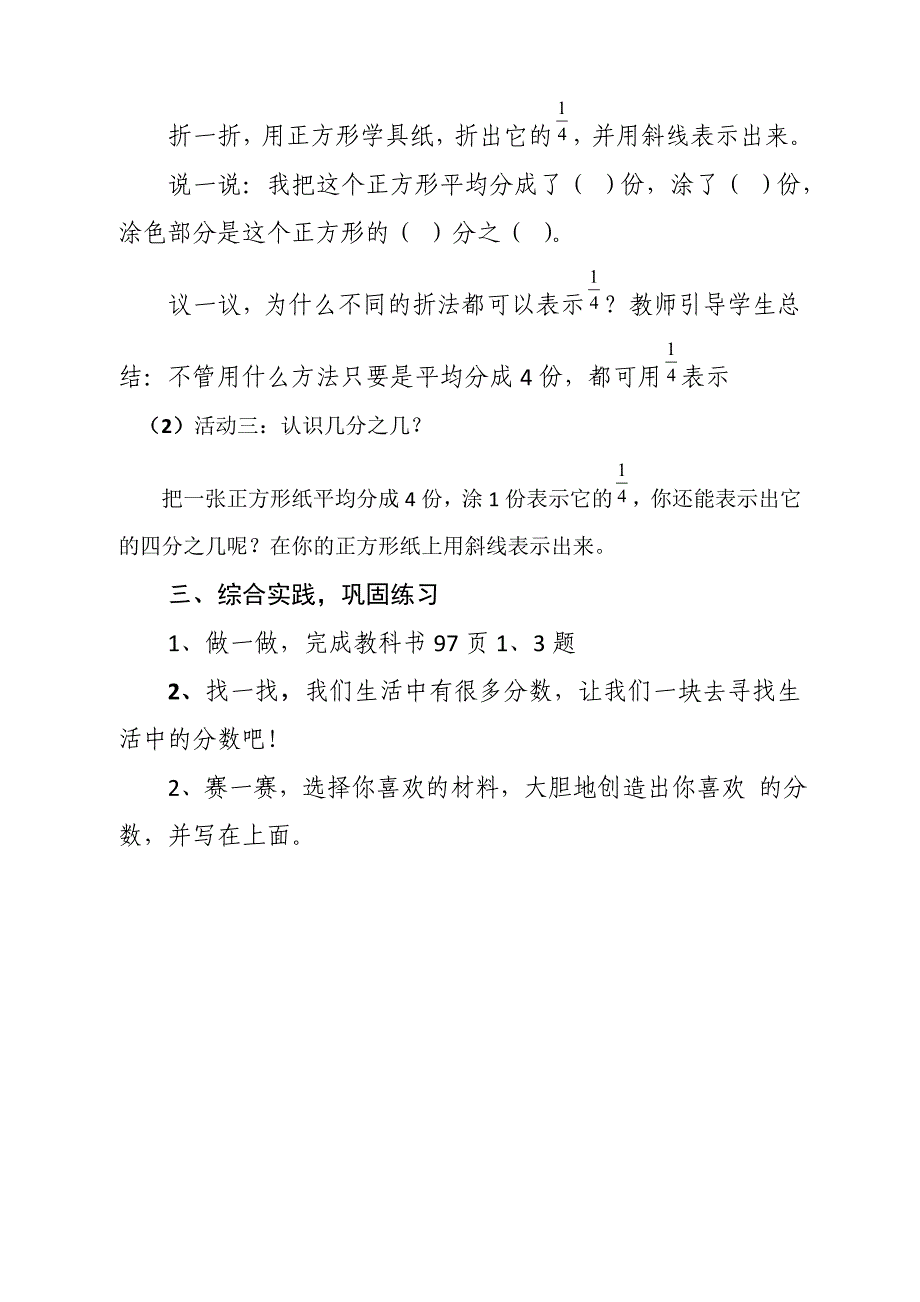 折一折，用正方形学具纸，折出它的1/4，并用斜线表示出来。
说一说：我把这个正方形平均分成了（ ）份，涂了（ ）份，
涂色部分是这个正方形的（ ）分之（ ）。
议一议，为什么不同的折法都可以表示1/4？教师引导学生总
结：不管用什么方法只要是平均分成4份，都可用1/4表示
（2）活动三：认识几分之几？
把一张正方形纸平均分成4份，涂1份表示它的1/4，你还能表示出它
的四分之几呢？在你的正方形纸上用斜线表示出来。
三、综合实践，巩固练习
1、做一做，完成教科书97页1、3题
2、找一找，我们生活中有很多分数，让我们一块去寻找生
活中的分数吧！
2、赛一赛，选择你喜欢的材料，大胆地创造出你喜欢 的分
数，并写在上面。